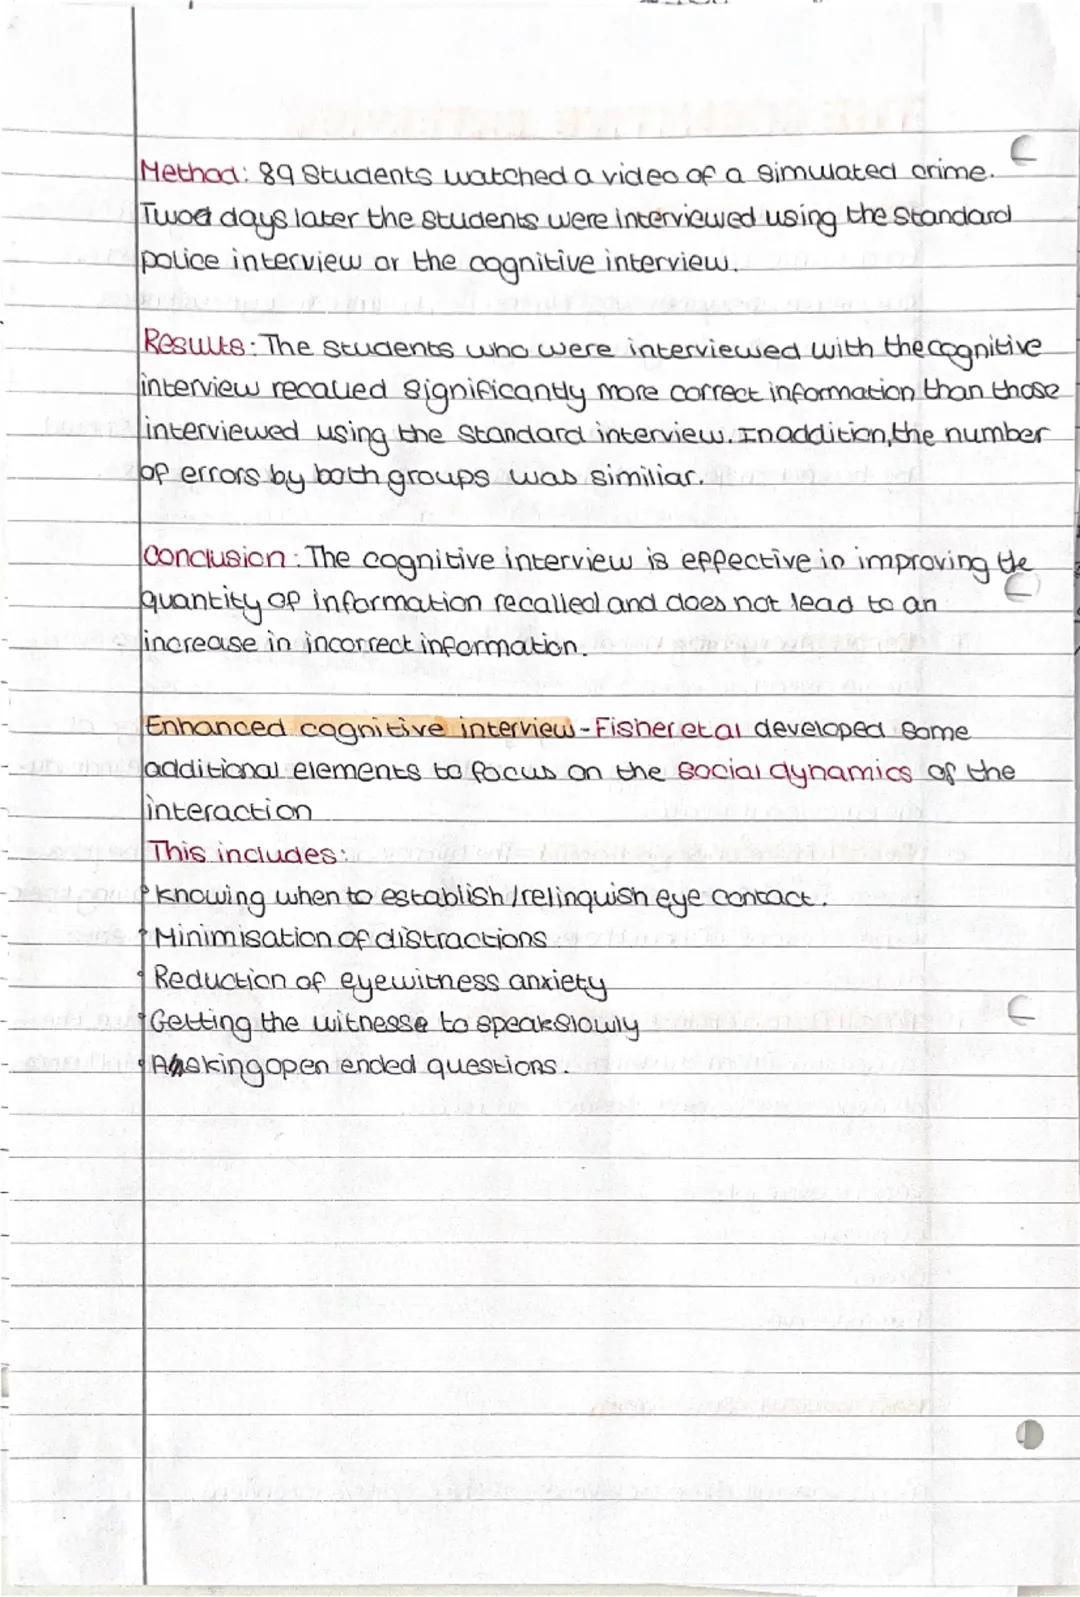 Method: 89 Students watched a video of a simulated crime.
Two days later the students were interviewed using the standard
police interview or the cognitive interview.
Results: The students who were interviewed with the cognitive
interview recalled significantly more correct information than those
interviewed using the standard interview. In addition, the number
of errors by both groups was similiar.
Conclusion: The cognitive interview is effective in improving the
quantity of information recalled and does not lead to an
increase in incorrect information.
Enhanced cognitive interview - Fisher et al developed some
additional elements to focus on the social dynamics of the
interaction
This includes:
• Knowing when to establish / relinquish eye contact.
• Minimisation of distractions
• Reduction of eyewitness anxiety
• Getting the witnesse to speak slowly
• Asking open ended questions.